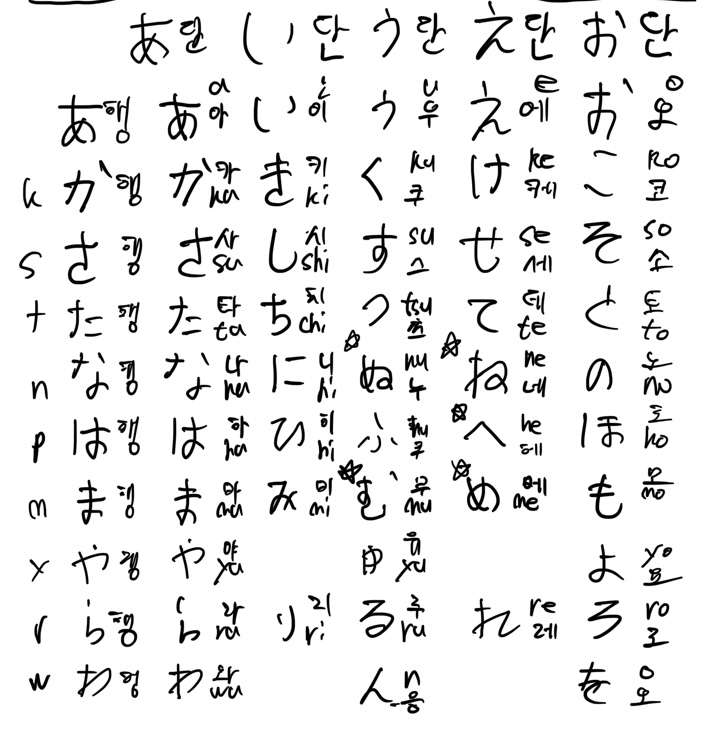 あ단 い단 う단 え단 お단
あ행 あ a 아 い i 이 う u 우 え e 에 お o 오
k か행 か 카 ka き 키 ki く ku 쿠 け ke 케 こ ko 코
s さ행 さ 사 sa し 시 shi す su 스 せ se 세 そ so 소
t た행 た 타 ta ち 치 chi つ tsu 츠 て 테 te と 토 to
n な행 な 나 na に 니 ni ☆ ぬ nu 누 ☆ ね ne 네 の 노 no
p は행 は 하 ha ひ 히 hi ふ hu 후 ☆ へ he 헤 ほ 호 ho
m ま행 ま 마 ma み 미 mi ☆ む 무 mu ☆ め 메 me も 모 mo
y や행 や 야 ya ゆ 유 yu よ yo 요
r ら행 ら 라 ra り 리 ri る 루 ru れ re 레 ろ ro 로
w わ행 わ 와 wa ん n 응 を o 오